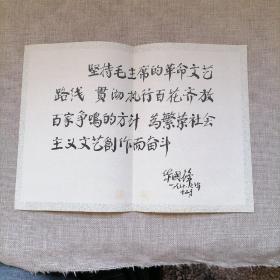 坚持毛主席的革命文艺
路线 贯彻执行百花齐放
百家争鸣的方针 为繁荣社会
主义文艺創作而奋斗
华國锋
一九七七年
十二月